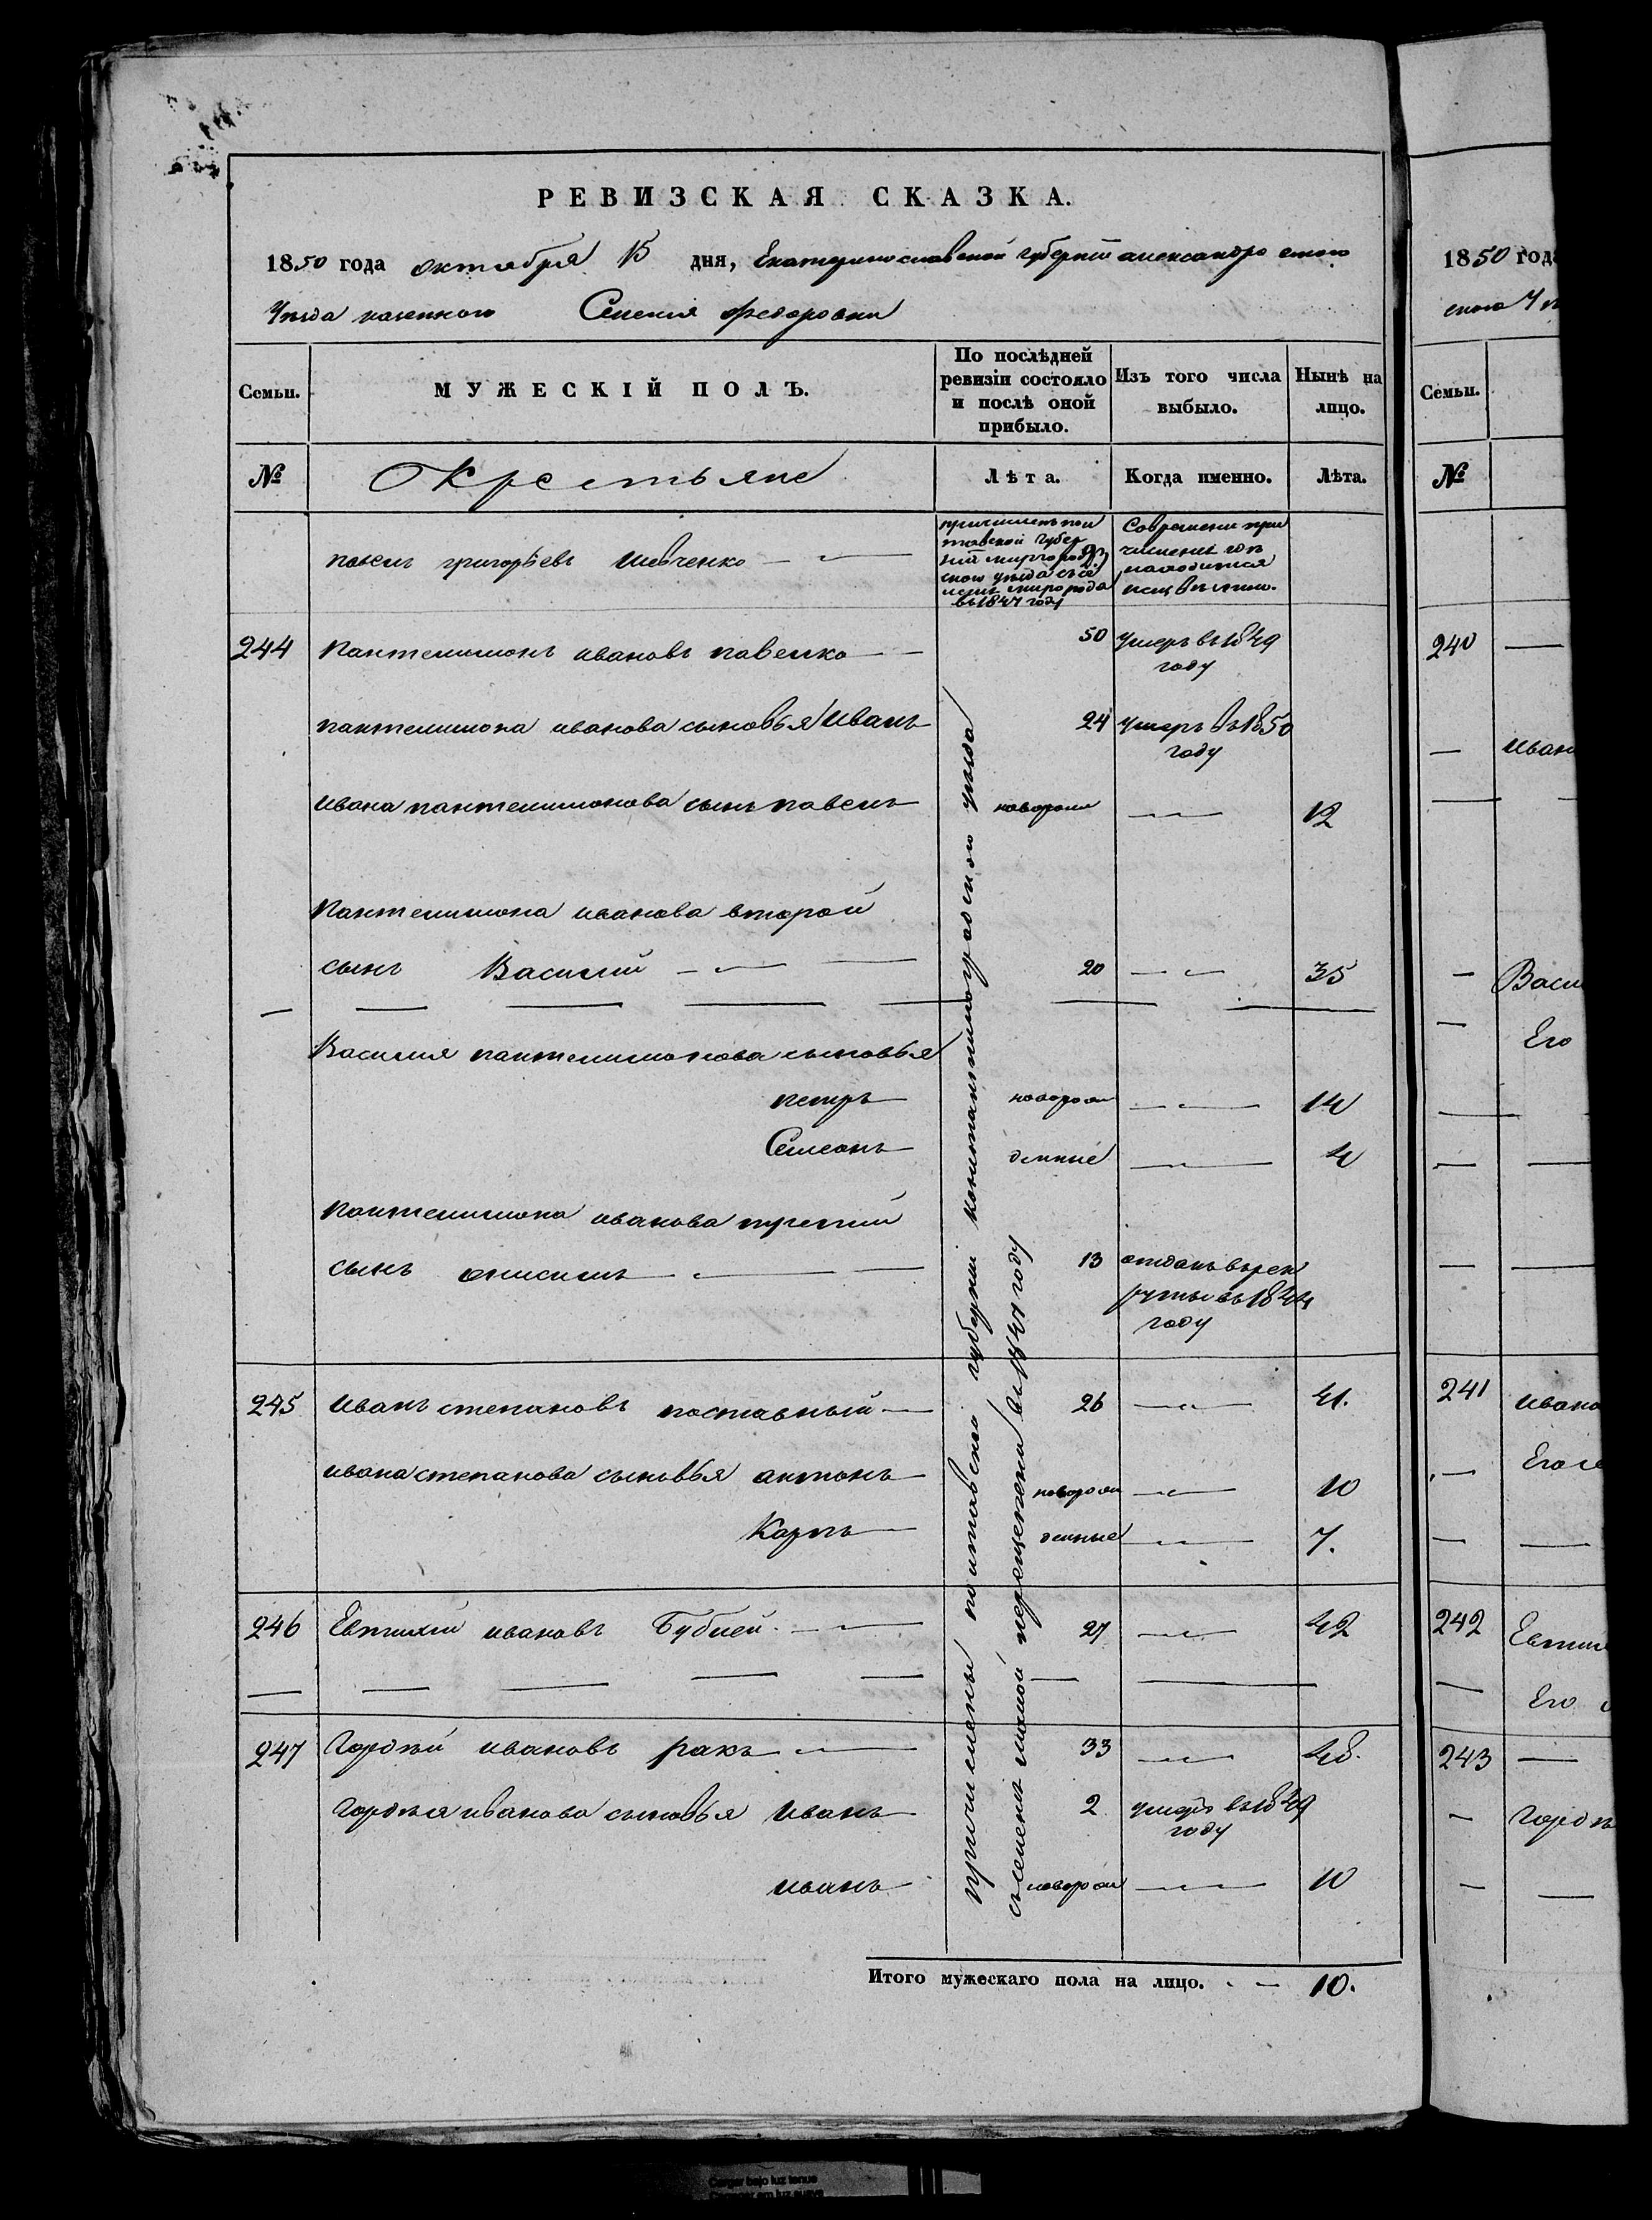 РЕВИЗСКАЯ СКАЗКА.
1850 года октября 15 дня, Екатеринославской губернии александровского
Уезда казенного Селения Федоровки
Семьи.
МУЖЕСКІЙ ПОЛЪ.
По послѣдней
ревизіи состояло
и послѣ оной
прибыло.
Изъ того числа
выбыло.
Нынѣ на
лицо.
№
Крестьяне
Лѣта.
Когда именно.
Лѣта.
павелъ григорьевъ шевченко
причисленъ пол
тавской губер
ніи миргород
ского уезда
миргорода
въ 1847 году
Современи при
численія
находится
244 Пантелимонъ ивановъ павелко 50 умеръ въ 1849
году
пантелимона иванова сыновья иванъ 24 умеръ въ 1850
году
ивана пантелимонова сынъ павелъ новорожд 12
Пантелимона иванова второй
сынъ Василий 20 35
Василия пантелимонова сыновья
петръ новорож 14
Семеонъ денные 4
пантелимона иванова третий
сынъ онисимъ 13 отданъ в рек
руты въ 1844
году
245 иванъ степановъ поставный 26 41.
ивана степанова сыновья антонъ новорож 10
Карпъ денные 7.
246 Евтихий ивановъ Бублей 27 42
247 Гордѣй ивановъ ракъ 33 48.
Гордѣя иванова сыновья иванъ 2 умеръ въ 1849
году
иванъ новорож 10
причислены полтавской губернии константиноградского уезда
въ 1847 году
Итого мужескаго пола на лицо. 10.
1850 года
Семьи.
№
240
Его
241
242
Его
243